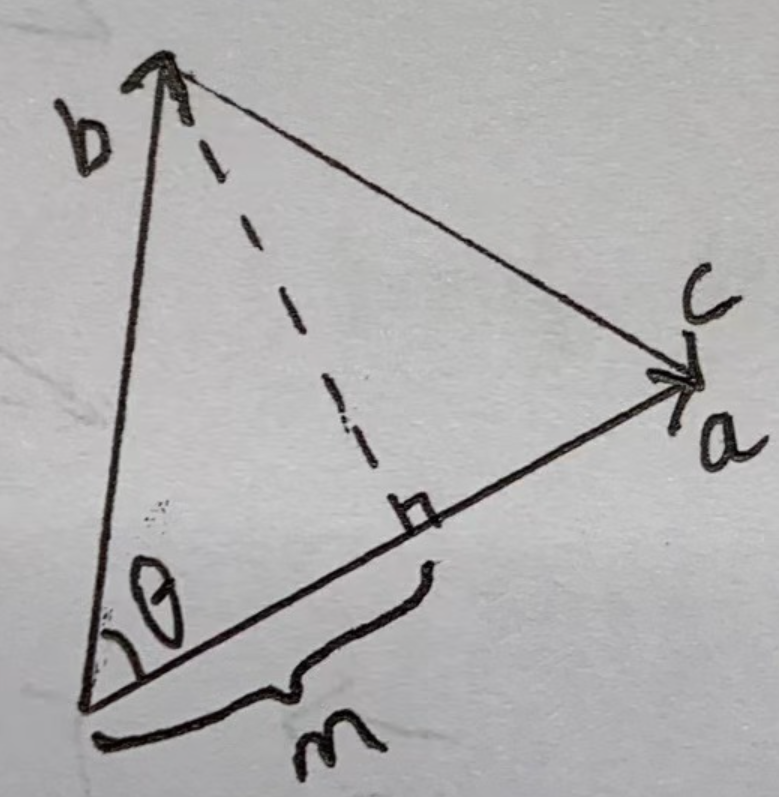 b
c
a
θ
m